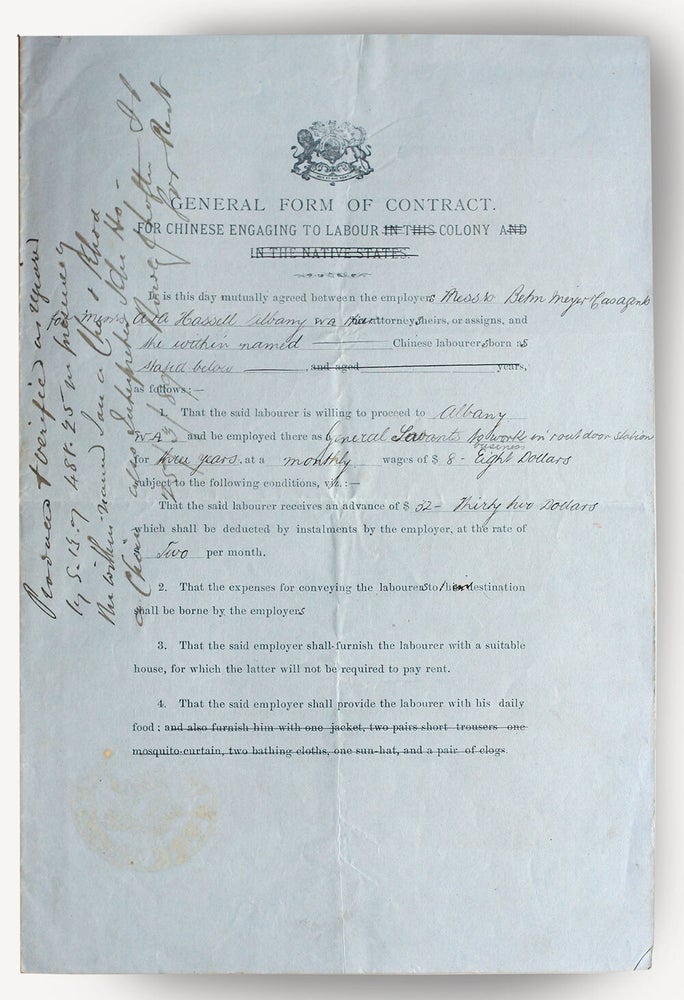 GENERAL FORM OF CONTRACT.
FOR CHINESE ENGAGING TO LABOUR IN THIS COLONY AND
IN THE NATIVE STATES.
It is this day mutually agreed between the employers Messrs Behn Meyer & Co as agents
for Messrs A & A Hassell Albany WA their attorneys, heirs, or assigns, and
the within named Chinese labourers born as
stated below, and aged years,
as follows:—
1. That the said labourer is willing to proceed to Albany
WA and be employed there as General Servants to work in & out door station
business
for three years, at a monthly wages of $ 8 - Eight Dollars
subject to the following conditions, viz.:—
That the said labourer receives an advance of $ 32 - Thirty two Dollars
which shall be deducted by instalments by the employer, at the rate of
Two per month.
2. That the expenses for conveying the labourers to their destination
shall be borne by the employers
3. That the said employer shall furnish the labourer with a suitable
house, for which the latter will not be required to pay rent.
4. That the said employer shall provide the labourer with his daily
food; and also furnish him with one jacket, two pairs short trousers one
mosquito-curtain, two bathing cloths, one sun-hat, and a pair of clogs.
Produced & verified as required
by S. 13 of 48 V. 25 in presence of
the within named
a Chinese